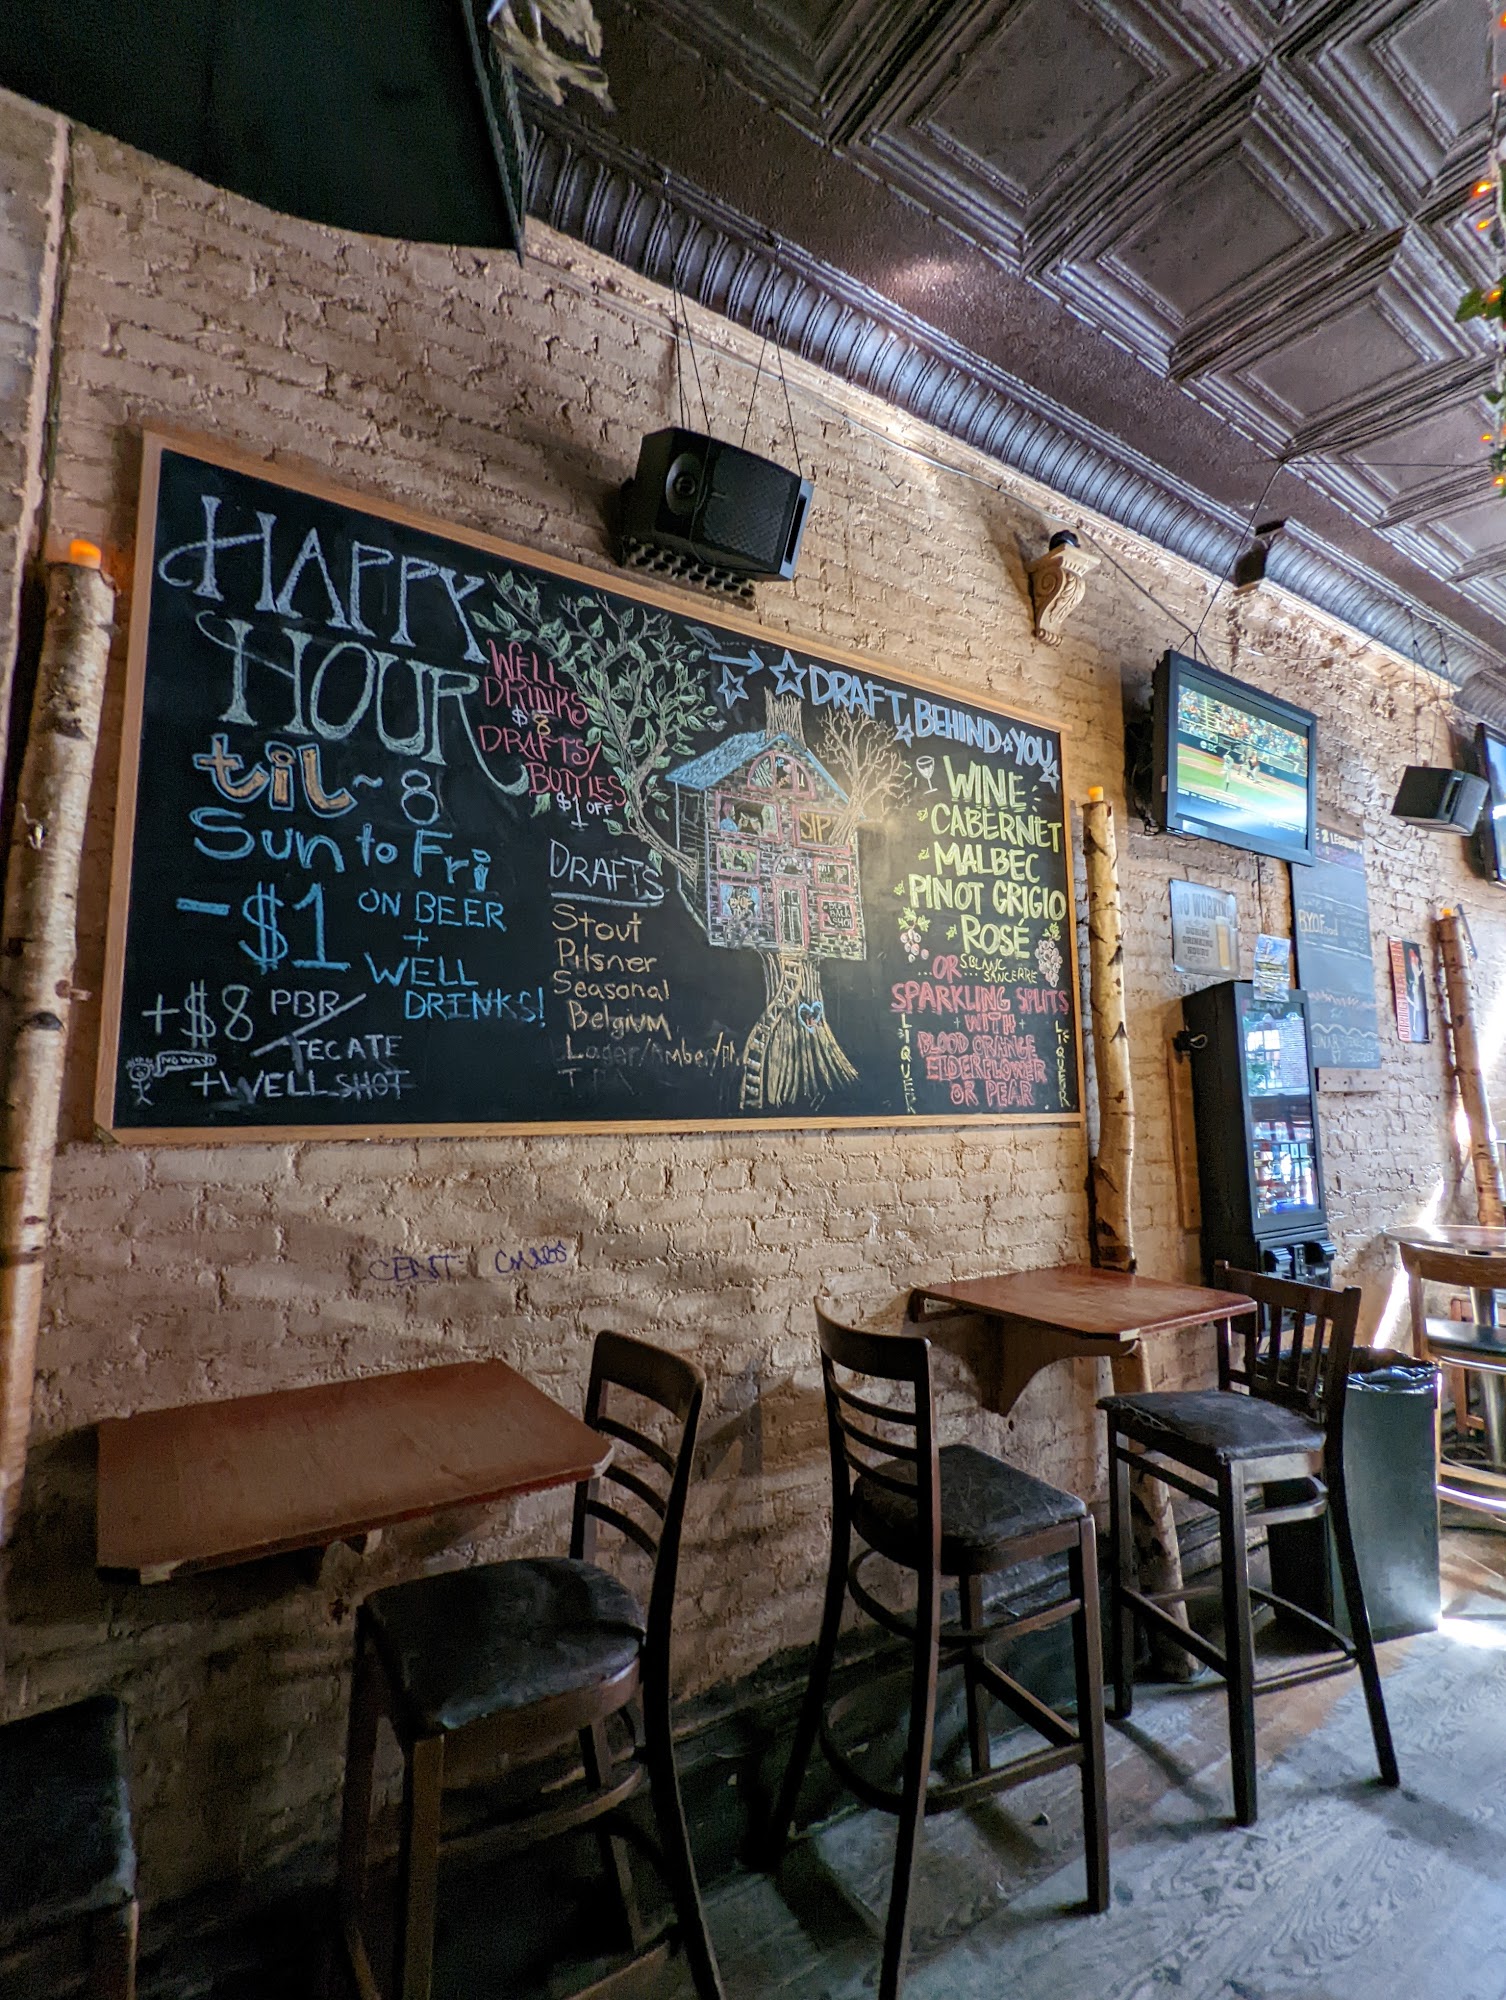 HAPPY
HOUR
til ~ 8
Sun to Fri
-$1 ON BEER
+
WELL
DRINKS!
+$8 PBR/
TECATE
NO WAY!
+WELL SHOT
WELL
DRINKS
$8
DRAFTS/
BOTTLES
$1 OFF
DRAFTS
Stout
Pilsner
Seasonal
Belgium
Lager/Amber/
IPA
→ DRAFT BEHIND YOU
WINE
CABERNET
MALBEC
PINOT GRIGIO
ROSÉ
S.BLANC
SANCERRE
...OR...
SPARKLING SPLITS
+ WITH +
BLOOD ORANGE
ELDERFLOWER
OR PEAR
LIQUER
LIQUER
CENT
NO WORKING
DURING
DRINKING
HOURS
BYOFood